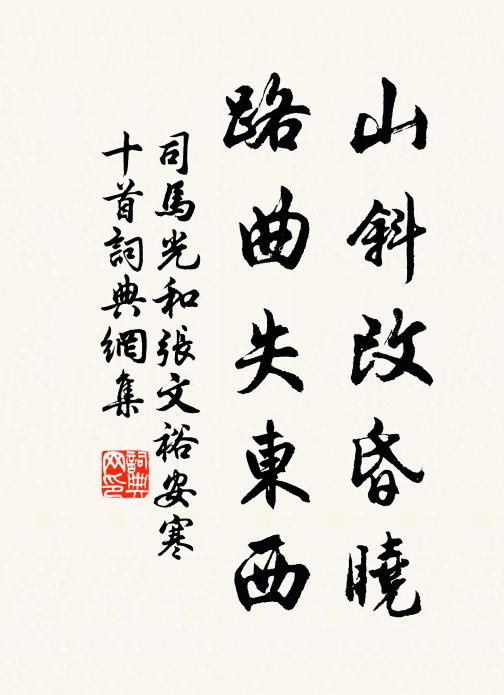 山斜改昏曉
路曲失東西
司馬光和張文裕安寒
十首詞典網集
詞典網印